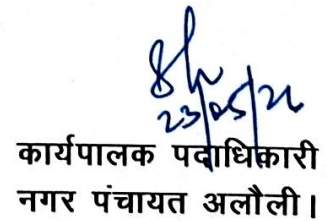 23/05/26
कार्यपालक पदाधिकारी
नगर पंचायत अलौली।